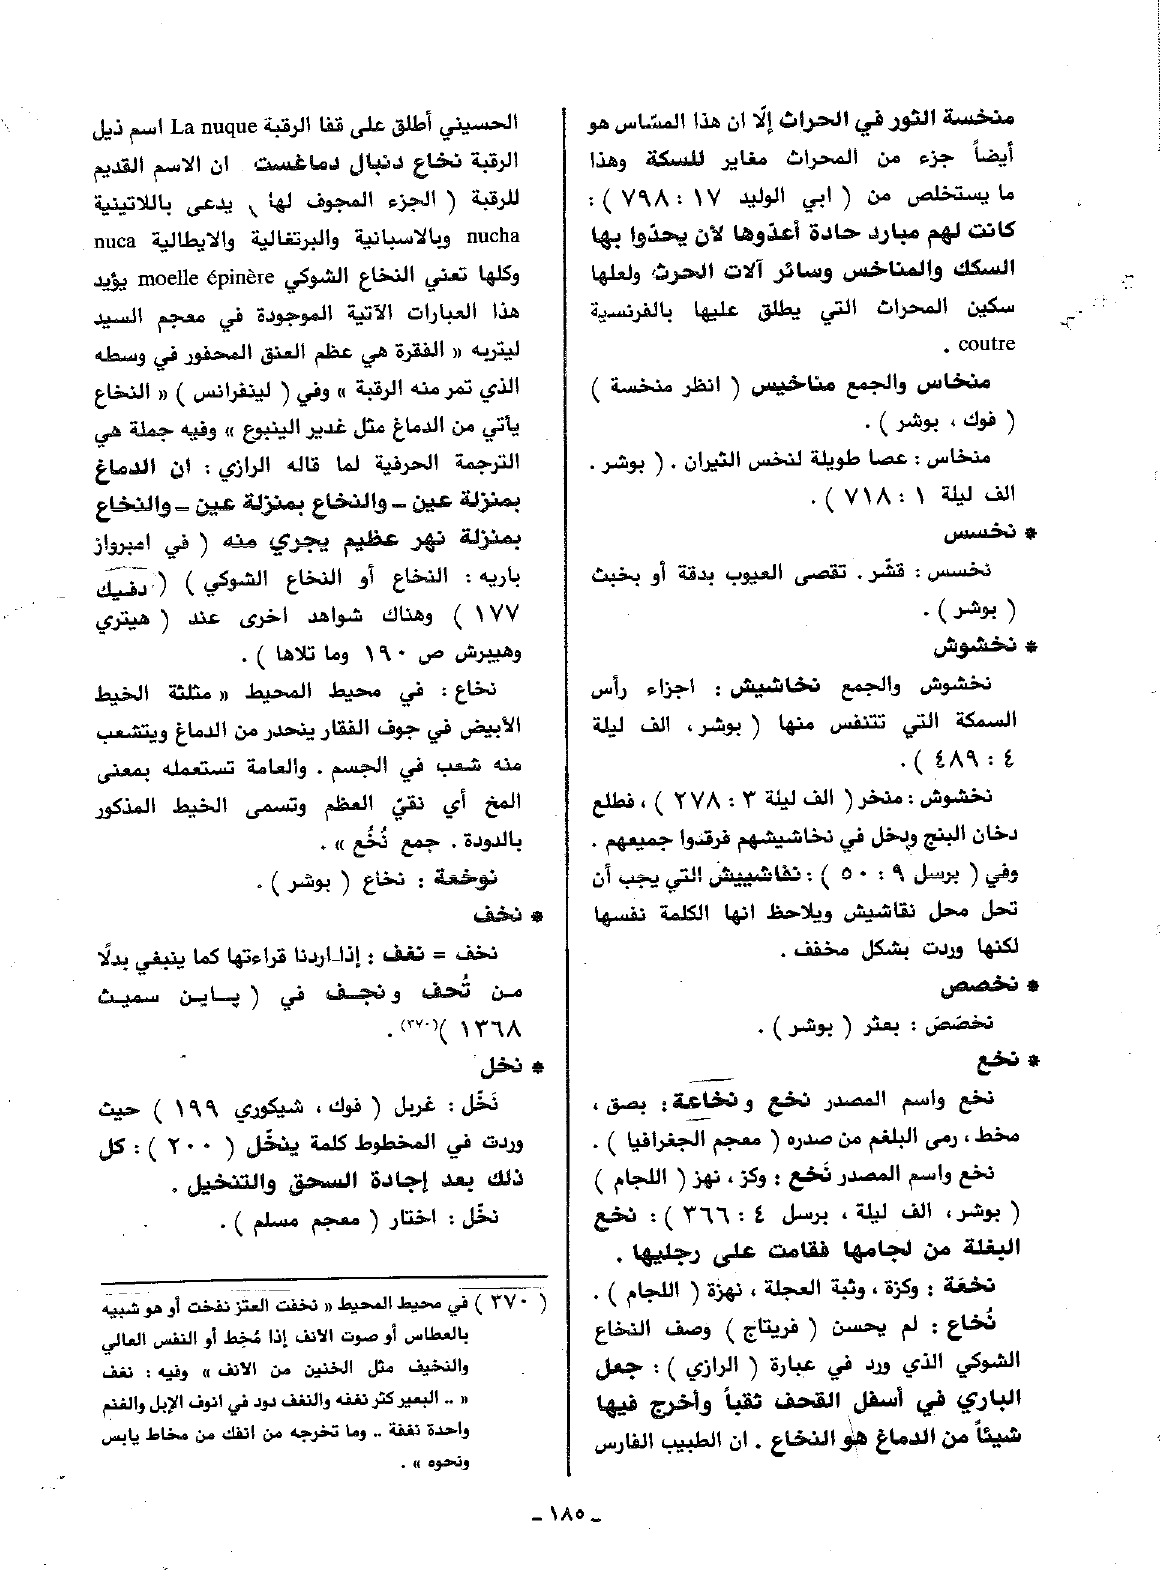 منخسة الثور في الحراث إلّا ان هذا المسّاس هو
أيضاً جزء من المحراث مغاير للسكة وهذا
ما يستخلص من ( ابي الوليد ١٧ : ٧٩٨ ) :
كانت لهم مبارد حادة أعدّوها لأن يحدّوا بها
السكك والمناخس وسائر آلات الحرث ولعلها
سكين المحراث التي يطلق عليها بالفرنسية
coutre .
منخاس والجمع مناخيس ( انظر منخسة )
( فوك ، بوشر ) .
منخاس : عصا طويلة لنخس الثيران . ( بوشر .
الف ليلة ١ : ٧١٨ ) .
* نخسس
نخسس : قشّر . تقصى العيوب بدقة أو بخبث
( بوشر ) .
* نخشوش
نخشوش والجمع نخاشيش : اجزاء رأس
السمكة التي تتنفس منها ( بوشر ، الف ليلة
٤ : ٤٨٩ ) .
نخشوش : منخر ( الف ليلة ٣ : ٢٧٨ ) ، فطلع
دخان البنج ودخل في نخاشيشهم فرقدوا جميعهم .
وفي ( برسل ٩ : ٥٠ ) : نفاشييش التي يجب أن
تحل محل نقاشيش ويلاحظ انها الكلمة نفسها
لكنها وردت بشكل مخفف .
* نخصص
نخصَصَ : بعثر ( بوشر ) .
* نخع
نخع واسم المصدر نخع و نخاعة : بصق ،
مخط ، رمى البلغم من صدره ( معجم الجغرافيا ) .
نخع واسم المصدر نَخع : وكز ، نهز ( اللجام )
( بوشر ، الف ليلة ، برسل ٤ : ٣٦٦ ) : نخع
البغلة من لجامها فقامت على رجليها .
نخعَة : وكزة ، وثبة العجلة ، نهزة ( اللجام ) .
نُخاع : لم يحسن ( فريتاج ) وصف النخاع
الشوكي الذي ورد في عبارة ( الرازي ) : جعل
الباري في أسفل القحف ثقباً وأخرج فيها
شيئاً من الدماغ هو النخاع . ان الطبيب الفارس
الحسيني أطلق على قفا الرقبة La nuque اسم ذيل
الرقبة نخاع دنبال دماغست ان الاسم القديم
للرقبة ( الجزء المجوف لها ) يدعى باللاتينية
nucha وبالاسبانية والبرتغالية والايطالية nuca
وكلها تعني النخاع الشوكي moelle épinère يؤيد
هذا العبارات الآتية الموجودة في معجم السيد
ليتريه « الفقرة هي عظم العنق المحفور في وسطه
الذي تمر منه الرقبة » وفي ( لينفرانس ) « النخاع
يأتي من الدماغ مثل غدير الينبوع » وفيه جملة هي
الترجمة الحرفية لما قاله الرازي : ان الدماغ
بمنزلة عين ــ والنخاع بمنزلة عين ــ والنخاع
بمنزلة نهر عظيم يجري منه ( في امبرواز
باريه : النخاع أو النخاع الشوكي ) ( دفيك
١٧٧ ) وهناك شواهد اخرى عند ( هيتري
وهبيرش ص ١٩٠ وما تلاها ) .
نخاع : في محيط المحيط « مثلثة الخيط
الأبيض في جوف الفقار ينحدر من الدماغ ويتشعب
منه شعب في الجسم . والعامة تستعمله بمعنى
المخ أي نقيّ العظم وتسمى الخيط المذكور
بالدودة . جمع نُخُع » .
نوخعة : نخاع ( بوشر ) .
* نخف
نخف = نغف : إذا اردنا قراءتها كما ينبغي بدلًا
من تُحف و نجف في ( پاين سميث
١٣٦٨ )(٣٧٠) .
* نخل
نَخّل : غربل ( فوك ، شيكوري ١٩٩ ) حيث
وردت في المخطوط كلمة ينخّل ( ٢٠٠ ) : كل
ذلك بعد إجادة السحق والتنخيل .
نخّل : اختار ( معجم مسلم ) .
( ٣٧٠ ) في محيط المحيط « نخفت العنز نفخت أو هو شبيه
بالعطاس أو صوت الانف إذا مُخِط أو النفس العالي
والنخيف مثل الخنين من الانف » وفيه : نغف
« .. البعير كثر نغفه والنغف دود في انوف الإبل والغنم
واحدة نغفة .. وما تخرجه من انفك من مخاط يابس
ونحوه » .
ـ ١٨٥ ـ